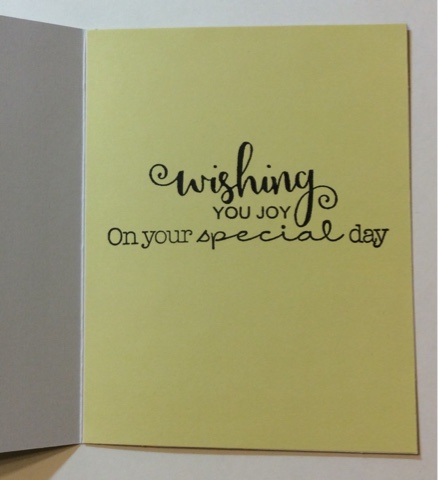 wishing
YOU JOY
On your special day